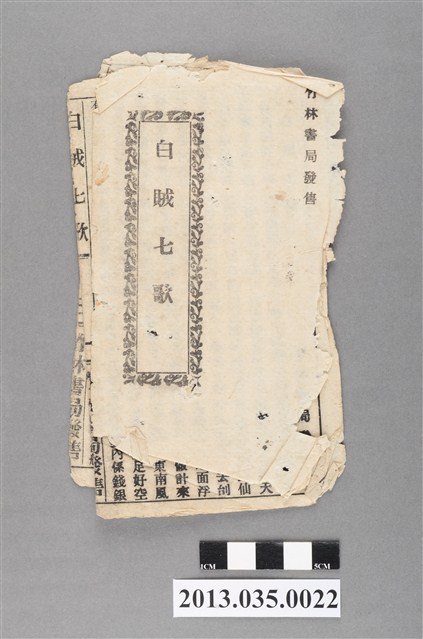 竹林書局發售
白賊七歌
白賊七歌
竹林書局發售
局發售
局
天
仙
去刣
面浮
計來
東南風
足好空
內係錢銀
1CM
5CM
2013.035.0022